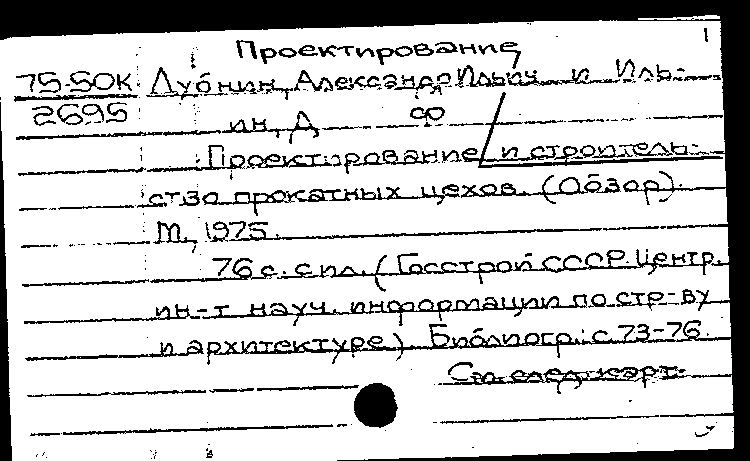 Проектирование 1
75-50К Лубнин, Александр Ильич и Иль-
2695 ин, Д Ф
Проектирование и строитель-
ство прокатных цехов. (Обзор).
М., 1975.
76 с. с ил. (Госстрой СССР. Центр.
ин-т науч. информации по стр-ву
и архитектуре). Библиогр.: с. 73-76.
См. след. карт.